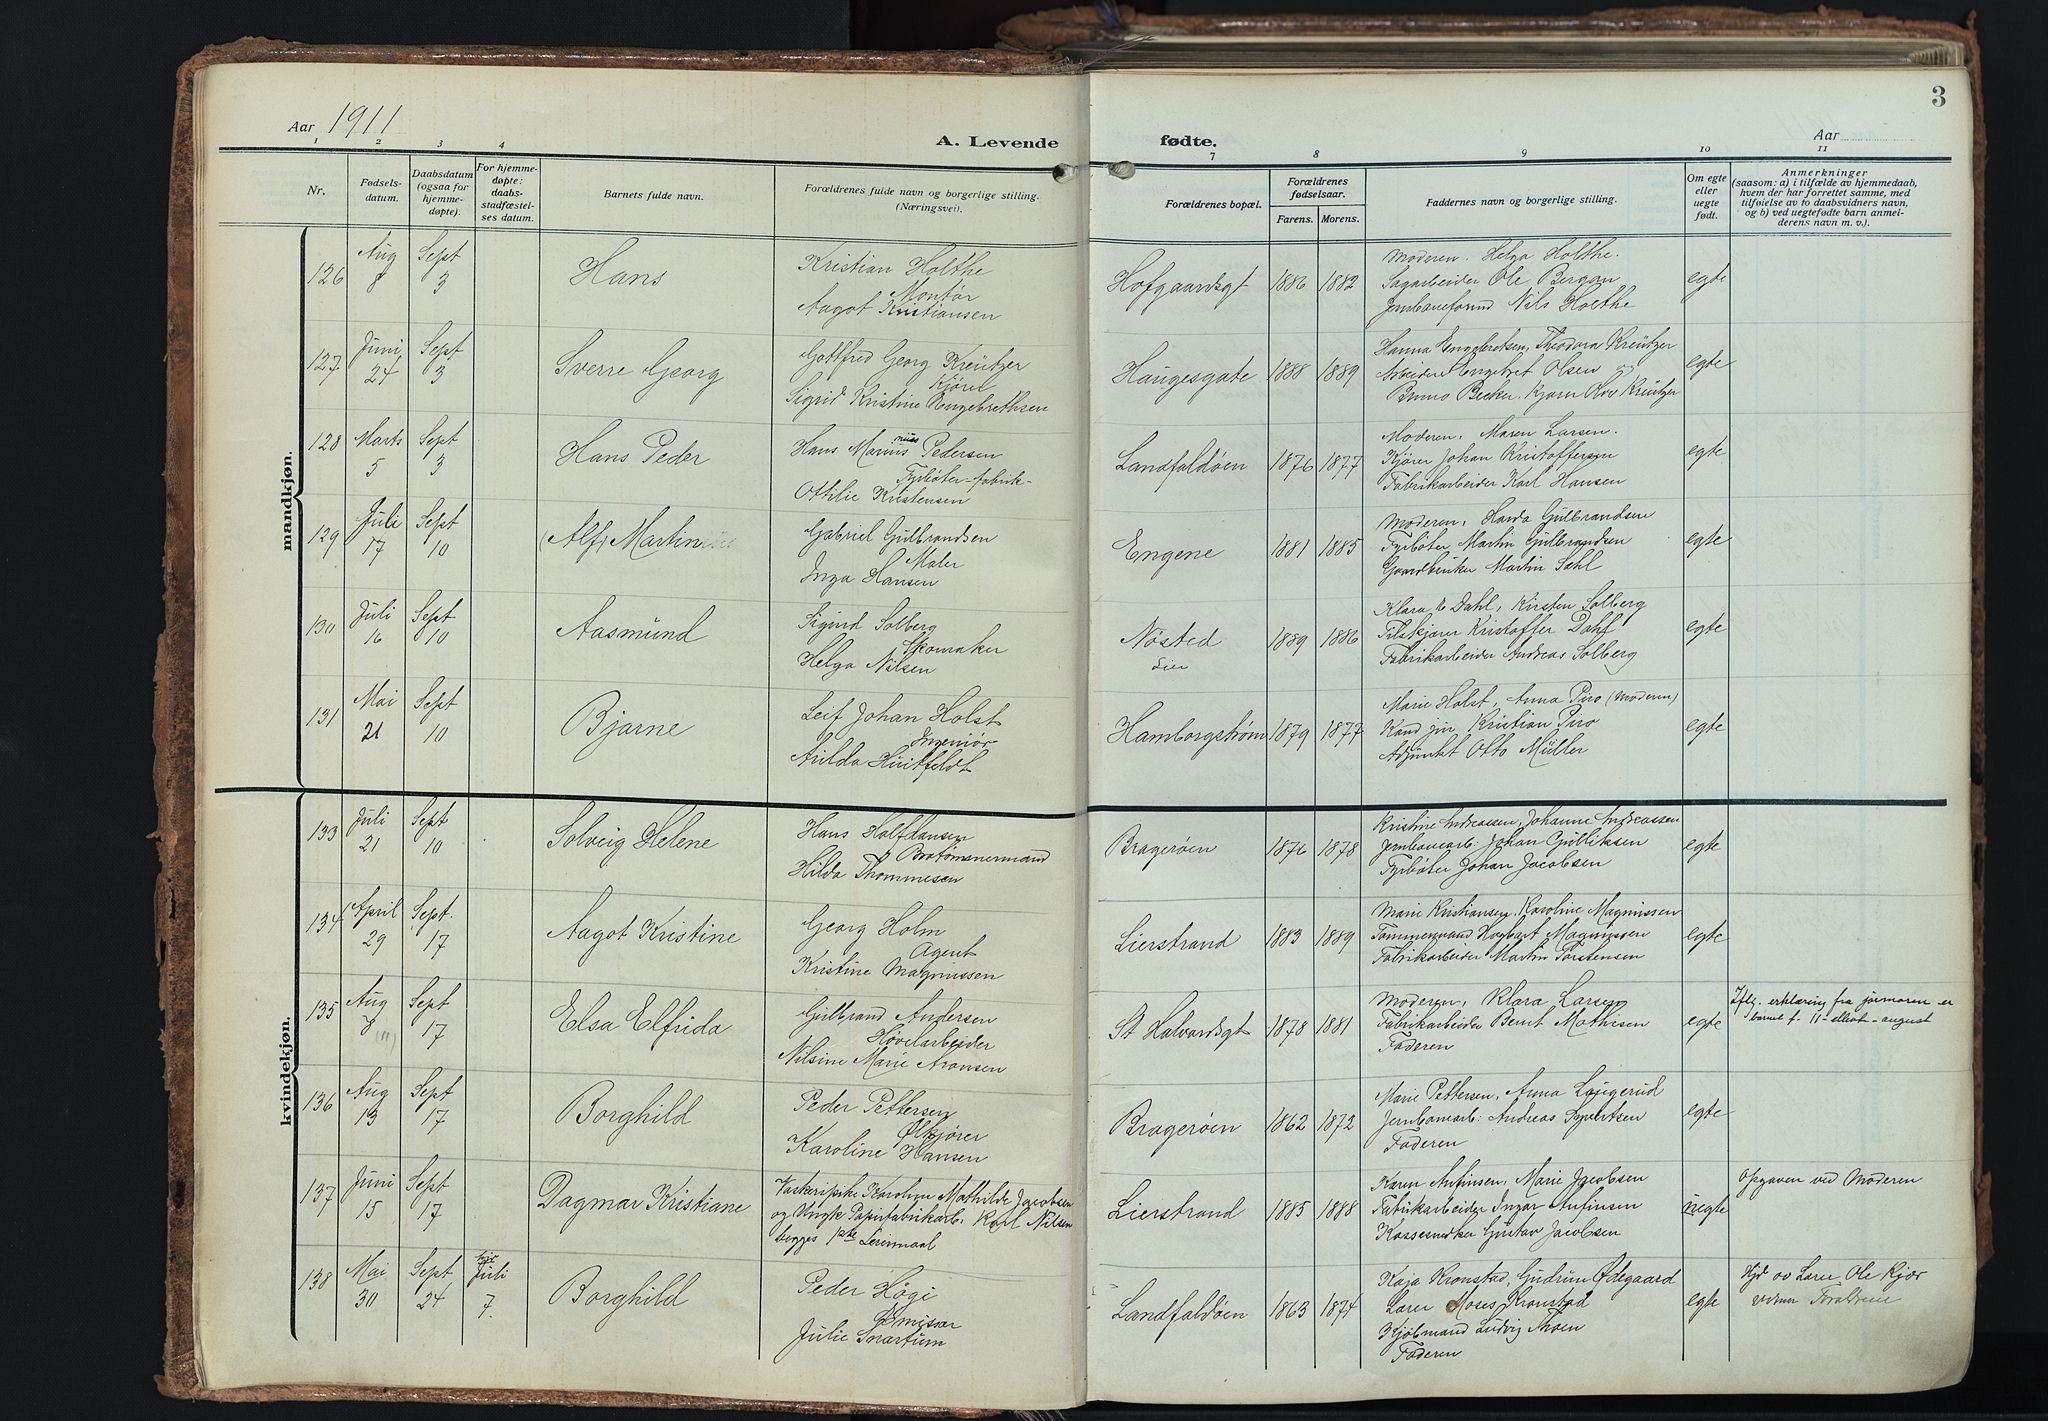 3
Aar 1911
Aar
A. Levende fødte.
1 2 3 4 7 8 9 10 11
Nr.
Fødselsdatum.
Daabsdatum (ogsaa for hjemmedøpte).
For hjemmedøpte: daabsstadfæstelses datum.
Barnets fulde navn.
Forældrenes fulde navn og borgerlige stilling. (Næringsvei).
Forældrenes bopæl.
Forældrenes fødselsaar.
Farens. Morens.
Faddernes navn og borgerlige stilling.
Om egte eller uegte født.
Anmerkninger
(saasom: a) i tilfælde av hjemmedaab, hvem der har forrettet samme, med tilføielse av to daabsvidners navn, og b) ved uegtefødte barn anmelderens navn m. v.).
mandkjøn.
126 Aug 8 Sept 3 Hans
Kristian Holthe
Montør
Aagot Kristiansen
Hofgaardsgt 1886 1882
Moderen. Helga Holthe.
Sagarbeider Ole Bergan
Nils Holthe
egte
127 Juni 24 Sept 3 Sverre Georg
Gottfred Georg Kreützer
Kjørel
Sigrid Kristine Engebrethsen
Haugesgate 1888 1889
Hanna Engebretsen, Theodora Kreützer
Arbeider Engebret Olsen og
Bruno Becker. Kreützer
egte
128 Marts 5 Sept 3 Hans Peder
Hans Marius Pedersen
Fyrbøter-fabrik-
Ottilie Kristensen
Landfaldøen 1876 1877
Moderen, Maren Larsen.
Kjører Johan Kristoffersen
Fabrikarbeider Karl Hansen
egte
129 Juli 17 Sept 10 (Alf) Martin
Gabriel Gülbrandsen
Maler
Inga Hansen
Engene 1881 1885
Moderen, Harda Gülbrandsen
Fyrbøter Martin Gülbrandsen
Martin Sahl
egte
130 Juli 16 Sept 10 Aasmünd
Sigurd Solberg
Skomaker
Helga Nilsen
Nøsted
Lier
1889 1886
Klara Dahl, Kirsten Solberg
Kristoffer Dahl
Fabrikarbeider Andreas Solberg
egte
131 Mai 21 Sept 10 Bjarne
Leif Johan Holst
Ingeniør
Arilda Hüitfeldt
Hamborgstrøm 1879 1877
Marie Holst, Anna Piro (Moderen)
Kand jur Kristian Piro
Adjunkt Otto Müller
egte
kvindekjøn.
133 Juli 21 Sept 10 Solveig Helene
Hans Halfdansen
Brotømmermand
Hilda Thommesen
Bragerøen 1876 1878
Kristine Andreassen, Johanne Andreassen
Jernbanearb: Johan Gülliksen
Fyrbøter Johan Jacobsen
egte
134 April 29 Sept. 17 Aagot Kristine
Georg Holm
Agent
Kristine Magnussen
Lierstrand 1883 1889
Marie Kristiansen, Karoline Magnussen
Tømmermand Hagbart Magnussen
Fabrikarbeider Martin Torstensen
egte
135 Aug 8 Sept 17 Elsa Elfrida
Gülbrand Andersen
Høvelarbeider
Nilsine Marie Aronsen
St Halvardsgt 1878 1881
Moderen, Klara Larsen
Fabrikarbeider Bernt Mathisen
Faderen
egte
Iflg. erklæring fra jormoren er
barnet f. 11 - ellevt - august
136 Aug 13 Sept 17 Borghild
Peder Pettersen
Ølkjører
Karoline Hansen
Bragerøen 1862 1872
Marie Pettersen, Anna Laugerud
Jernbanearb: Andreas Syvertsen
Faderen
egte
137 Juni 15 Sept 17 Dagmar Kristiane
Vaskeripike Karoline Mathilde Jacobsen
og Ungk Papirfabrikarb. Karl Nilsen
begges 1ste Leiermaal
Lierstrand 1885 1888
Karen Anfinsen, Marie Jacobsen
Fabrikarbeider Ingar Anfinsen
Kassesnekker Gustav Jacobsen
üegte
Opgaven ved Moderen
138 Mai 30 Sept 24 Juli 7. Borghild
Peder Høgi
Julie Snartum
Landfaldøen 1863 1874
Kaja Kronstad, Gudrun Ødegaard
Lærer Moses Kronstad
Kjøbmand Ludvig Thoen
Faderen
egte
Hjd. av Lærer Ole Kjær
vidner Forældrene